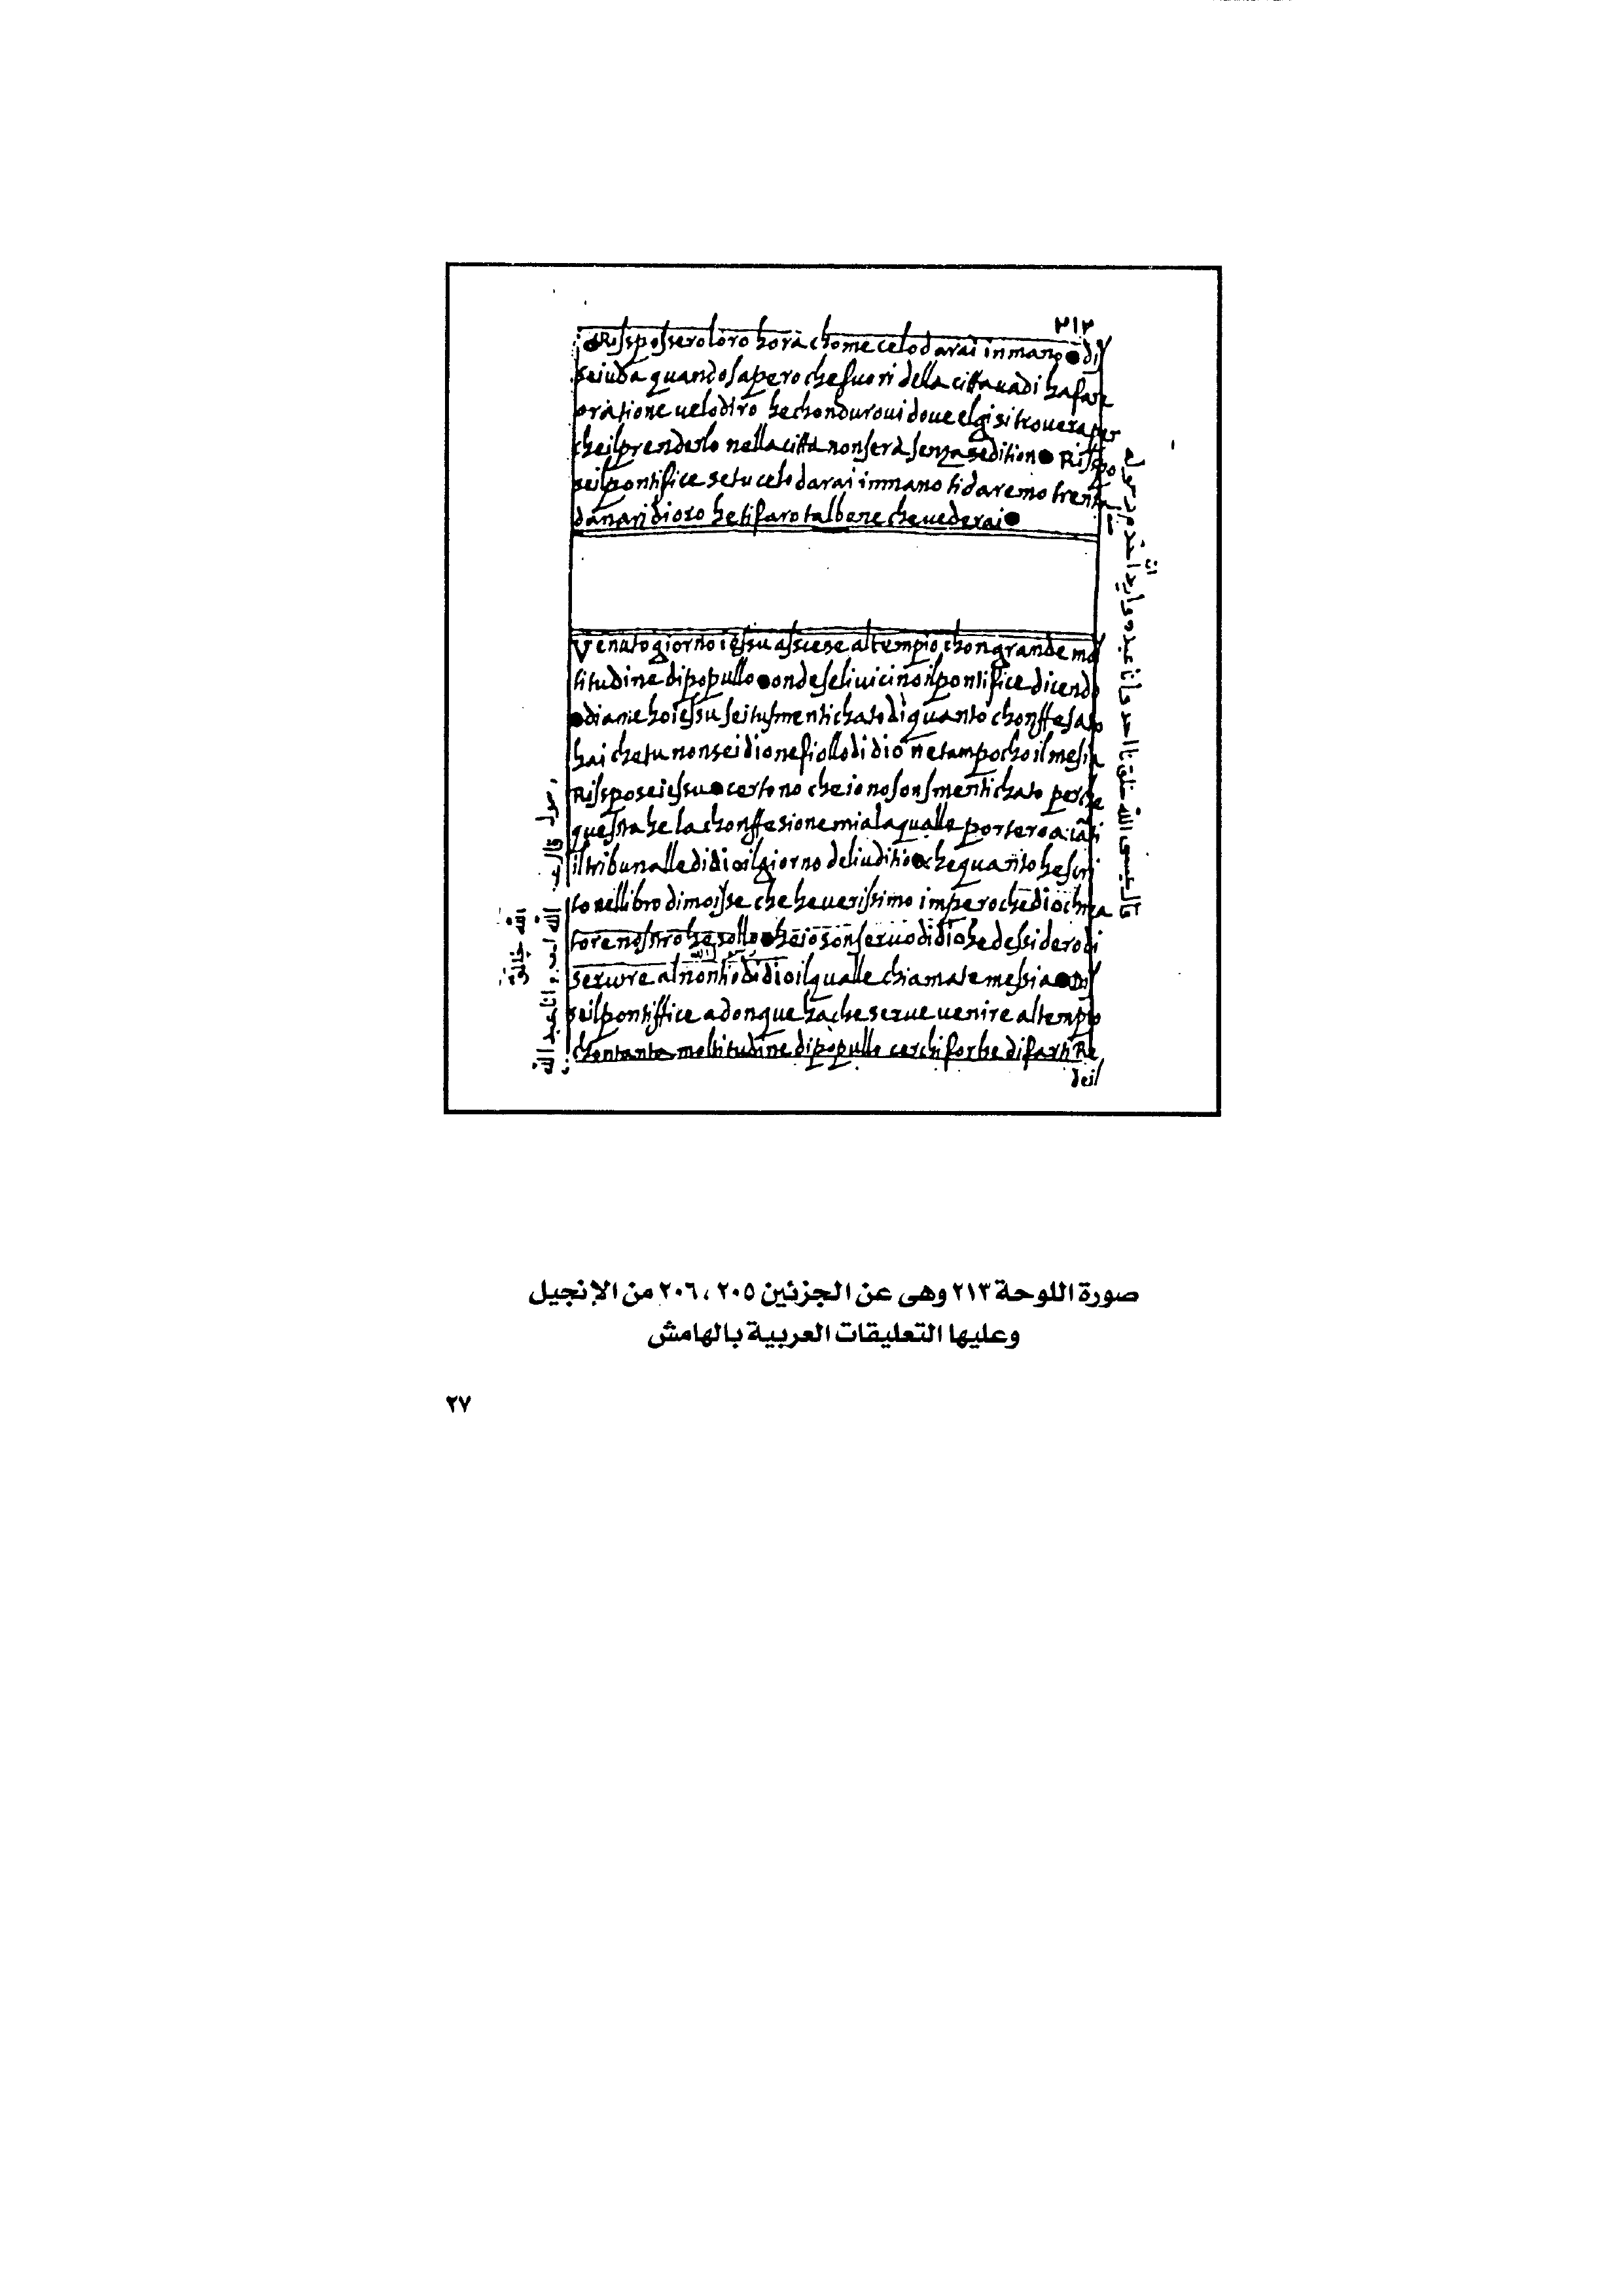 ٢١٢
Rissposseroloro hora chome celo darai inmano dis
seiuda quando sapero che fuori della citta uadi ha fare
oratione uelo diro he chonduroui doue elgi si trouera per
che il prenderlo nella citta non sera senza sedition Risspo
se il pontifice se tu celo darai inmano ti daremo trenta
danari di oro he ti faro tal bene che uederai
Venuto giorno iessu asscese al tempio chon grande mol
titudine di popullo onde seli uicino il pontifice dicendo
dime ho iessu sei tu smentichato di quanto chonffesato
hai che tu non sei dio ne fiollo di dio ne tampocho il mesia
Rissposse iessu certo no che io no son smentichato perche
questa he la chonffesione mia la qualle portero auāti
il tribunalle di dio il giorno del iuditio he quanto he scri
to nel libro di moisse che he uerissimo impero che dio chrea
tore nostro he sollo he io son seruo di dio he dessidero di
seruire al nontio di dio il qualle chiamate messia dis
se il pontiffice adonque ha che serue uenire al tempio
chon tanta moltitudine di popullo cerchi forse di farti Re
deil
قال عيسى الله خلقنا احد وأنا عبده واريد أخدم رسوله
رسول
الله احد وانا عبد الله
الله خالق
صورة اللوحة ٢١٣ وهى عن الجزئين ٢٠٥ ، ٢٠٦ من الإنجيل
وعليها التعليقات العربية بالهامش
٢٧